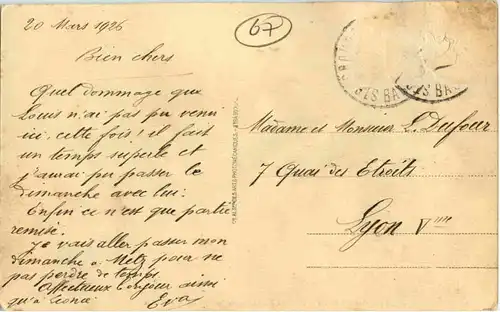 20 Mars 1926
67
Bien chers
Quel dommage que
Louis n'ai pas pu venir
ici, cette fois! il fait
un temps superbe et
j'aurai pu passer le
dimanche avec lui.
Enfin ce n'est que partie
remise.
Je vais aller passer mon
dimanche a Metz pour ne
pas perdre de temps.
Affectueux bonjour ainsi
qu'à Leonce. Eva
Madame et Monsieur L. Dufour
7 Quai des Etroits
Lyon Vme